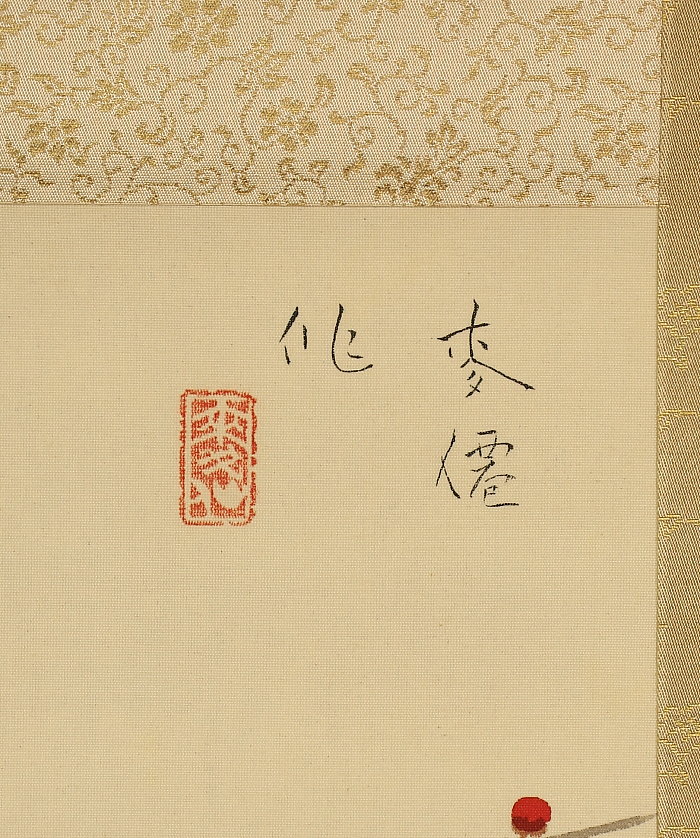 麦僊
作